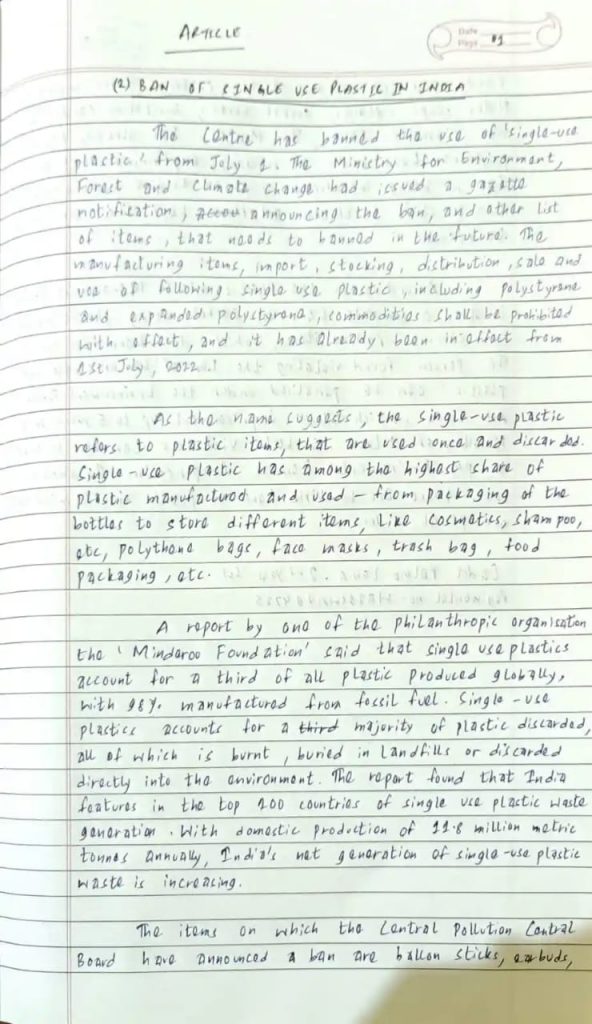 ARTICLE
Date
Page #1
(2) BAN OF SINGLE USE PLASTIC IN INDIA
The Centre has banned the use of 'single-use
plastic' from July 1. The Ministry for Environment,
Forest and Climate change had issued a gazette
notification, announcing the ban, and other list
of items, that needs to banned in the future. The
manufacturing items, import, stocking, distribution, sale and
use of following single use plastic, including polystyrene
and expanded polystyrene, commodities shall be prohibited
with effect, and it has already been in effect from
1st July, 2022.
As the name suggests, the single-use plastic
refers to plastic items, that are used once and discarded.
Single-use plastic has among the highest share of
plastic manufactured and used - from packaging of the
bottles to store different items, like cosmetics, shampoo,
etc, polythene bags, face masks, trash bag, food
packaging, etc.
A report by one of the philanthropic organisation
the 'Minderoo Foundation' said that single use plastics
account for a third of all plastic produced globally,
with 98% manufactured from fossil fuel. Single-use
plastics accounts for a third majority of plastic discarded,
all of which is burnt, buried in landfills or discarded
directly into the environment. The report found that India
features in the top 100 countries of single use plastic waste
generation. With domestic production of 11.8 million metric
tonnes annually, India's net generation of single-use plastic
waste is increasing.
The items on which the Central Pollution Control
Board have announced a ban are ballon sticks, earbuds,